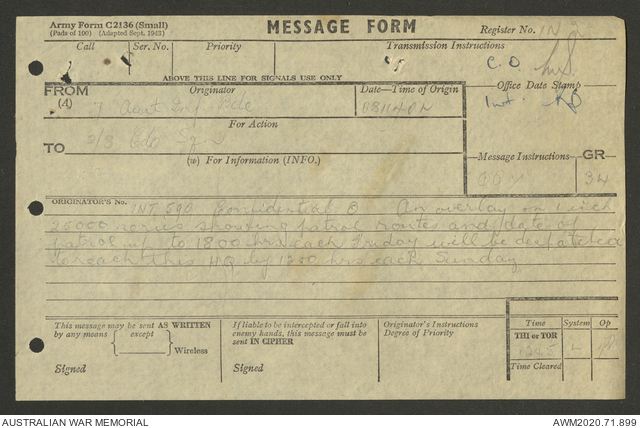 Army Form C2136 (Small)
(Pads of 100) (Adapted Sept. 1943)
MESSAGE FORM
Register No. IN 2
Call Ser. No. Priority Transmission Instructions
C.O
ABOVE THIS LINE FOR SIGNALS USE ONLY
Office Date Stamp
Int.
FROM
(A)
Originator
7 Aust Inf Bde
Date—Time of Origin
For Action
TO
2/8 Cdo
(W) For Information (INFO.)
Message Instructions
GR
34
ORIGINATOR'S No.
INT 590 Confidential An overlay on 1 inch
25000 series showing patrol routes and dates of
patrol up to 1800 hrs each Friday will be despatched
to reach this HQ by 1200 hrs each Sunday
This message may be sent AS WRITTEN
by any means except
Wireless
Signed
If liable to be intercepted or fall into
enemy hands, this message must be
sent IN CIPHER
Signed
Originator's Instructions
Degree of Priority
Time System Op
THI or TOR
Time Cleared
AUSTRALIAN WAR MEMORIAL
AWM2020.71.899